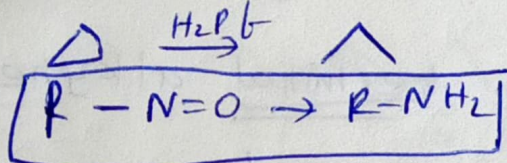 H₂Pt
R – N=O → R–NH₂